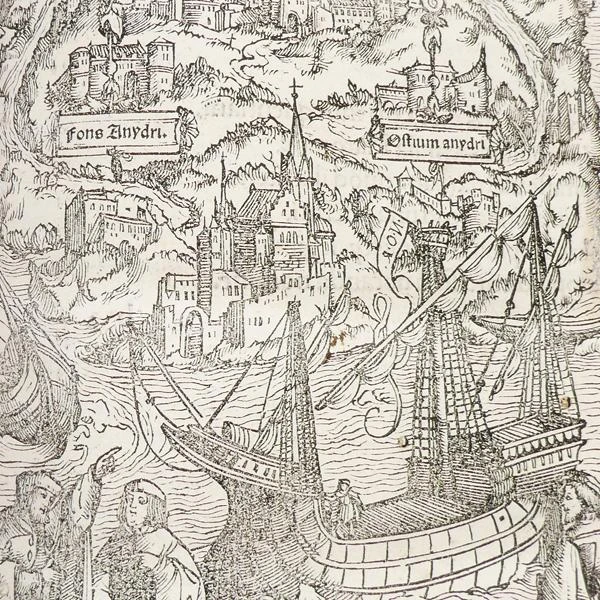 Fons Anydri.
Ostium anydri